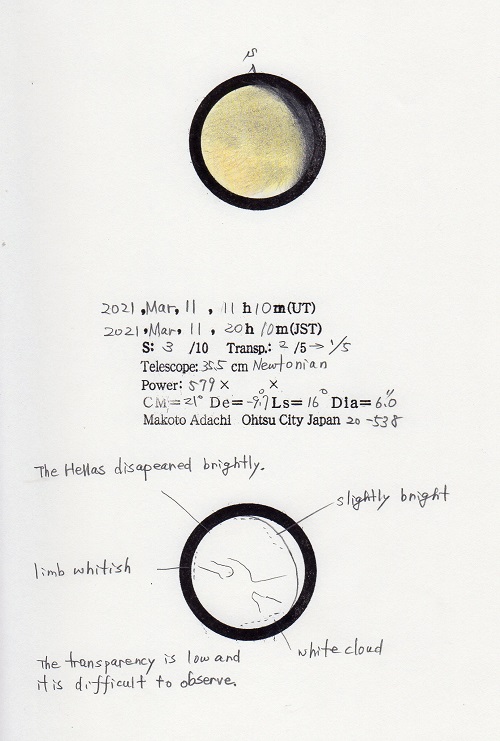 S
2021, Mar, 11, 11h10m(UT)
2021, Mar, 11, 20h10m(JST)
S: 3 /10 Transp.: 2 /5→1/5
Telescope: 35.5 cm Newtonian
Power: 579× ×
CM=21° De=-9.7 Ls=16° Dia=6.0"
Makoto Adachi Ohtsu City Japan 20-538
The Hellas disapeaned brightly.
slightly bright
limb whitish
white cloud
The transparency is low and
it is difficult to observe.